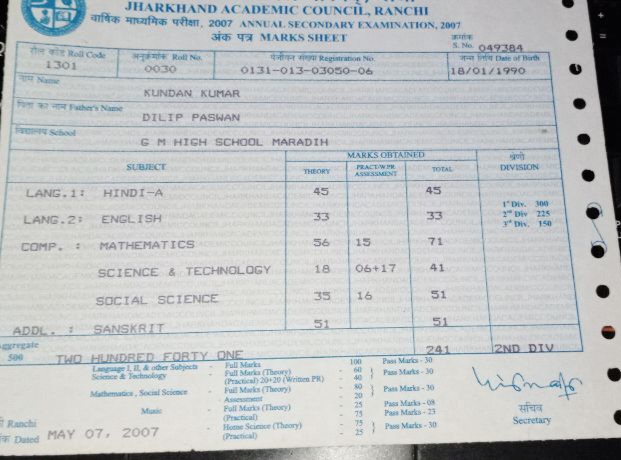 JHARKHAND ACADEMIC COUNCIL, RANCHI
वार्षिक माध्यमिक परीक्षा, 2007 ANNUAL SECONDARY EXAMINATION, 2007
अंक पत्र MARKS SHEET
क्रमांक S. No. 049384
रोल कोड Roll Code अनुक्रमांक Roll No. पंजीयन संख्या Registration No. जन्म तिथि Date of Birth
1301 0030 0131-013-03050-06 18/01/1990
नाम Name
KUNDAN KUMAR
पिता का नाम Father's Name
DILIP PASWAN
विद्यालय School
G M HIGH SCHOOL MARADIH
SUBJECT MARKS OBTAINED श्रेणी DIVISION
THEORY PRACT/WPR ASSESSMENT TOTAL
LANG.1: HINDI-A 45 45
1st Div. 300
LANG.2: ENGLISH 33 33
2nd Div 225
3rd Div. 150
COMP. : MATHEMATICS 56 15 71
SCIENCE & TECHNOLOGY 18 06+17 41
SOCIAL SCIENCE 35 16 51
ADDL. : SANSKRIT 51 51
Aggregate
500 TWO HUNDRED FORTY ONE 241 2ND DIV
Language I, II, & other Subjects - Full Marks - 100 Pass Marks - 30
Science & Technology - Full Marks (Theory) - 60 } Pass Marks - 30
(Practical) 20+20 (Written PR) - 40
Mathematics, Social Science - Full Marks (Theory) - 80 } Pass Marks - 30
- Assessment - 20
Music - Full Marks (Theory) - 25 Pass Marks - 08
(Practical) - 75 Pass Marks - 23
- Home Science (Theory) - 75 } Pass Marks - 30
(Practical) - 25
सचिव
Secretary
Ranchi
Dated MAY 07, 2007